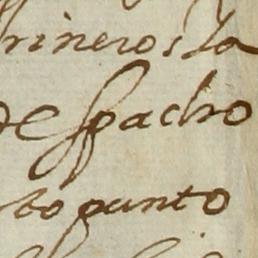 rineros la
despacho
to punto